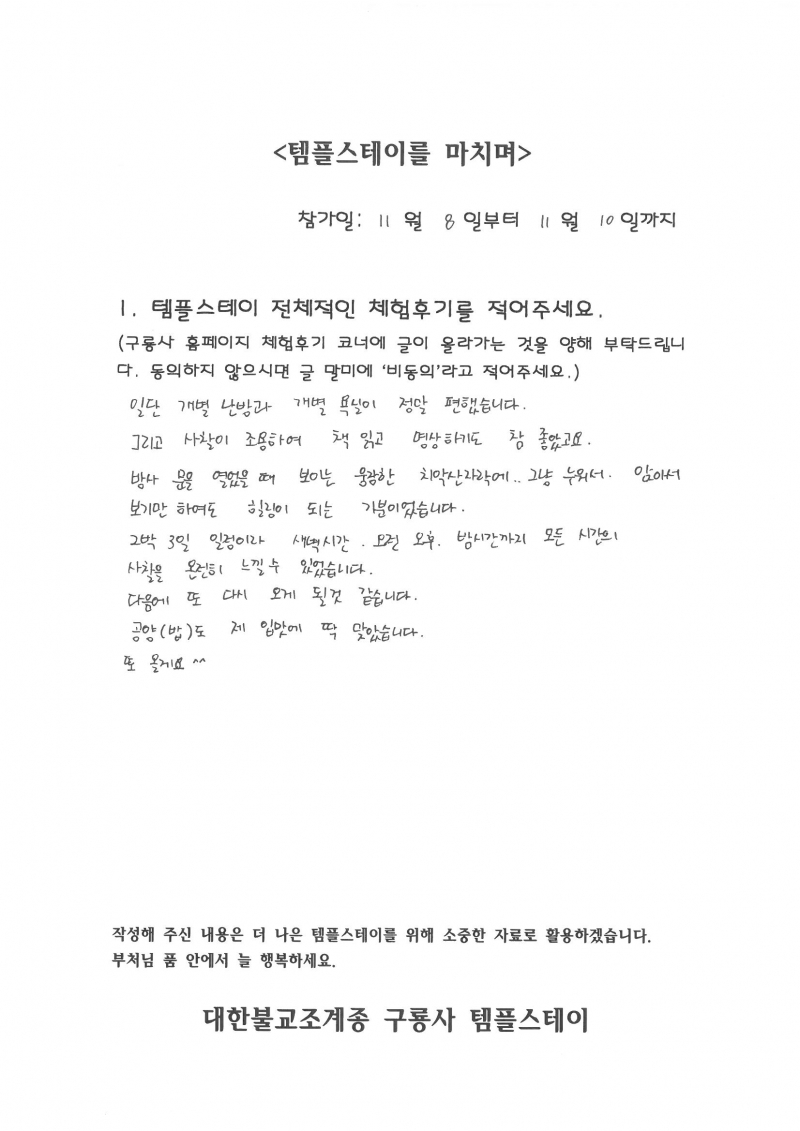 <템플스테이를 마치며>
참가일: 11 월 8 일부터 11 월 10 일까지
1. 템플스테이 전체적인 체험후기를 적어주세요.
(구룡사 홈페이지 체험후기 코너에 글이 올라가는 것을 양해 부탁드립니
다. 동의하지 않으시면 글 말미에 '비동의'라고 적어주세요.)
일단 개별 난방과 개별 욕실이 정말 편했습니다.
그리고 사찰이 조용하여 책 읽고 명상하기도 참 좋았고요.
방사 문을 열었을 때 보이는 웅장한 치악산자락에.. 그냥 누워서. 앉아서
보기만 하여도 힐링이 되는 기분이었습니다.
2박 3일 일정이라 새벽시간. 오전 오후. 밤시간까지 모든 시간의
사찰을 온전히 느낄 수 있었습니다.
다음에 또 다시 오게 될것 같습니다.
공양(밥)도 제 입맛에 딱 맞았습니다.
또 올게요 ^^
작성해 주신 내용은 더 나은 템플스테이를 위해 소중한 자료로 활용하겠습니다.
부처님 품 안에서 늘 행복하세요.
대한불교조계종 구룡사 템플스테이